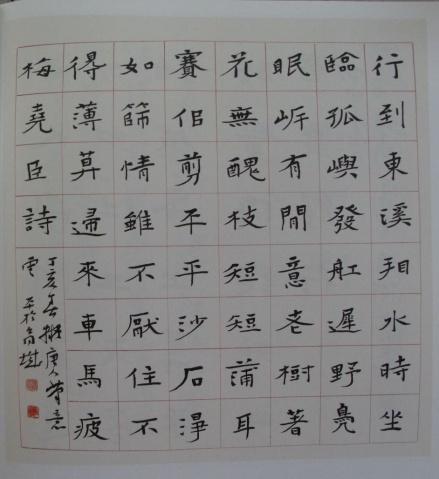 行到東溪看水時坐
臨孤嶼發舡遲野鳧
眠岸有閒意老樹著
花無醜枝短短蒲耳
齊佀剪平平沙石淨
如篩情雖不厭住不
得薄莫歸來車馬疲
梅堯臣詩
丁亥擬唐人筆意